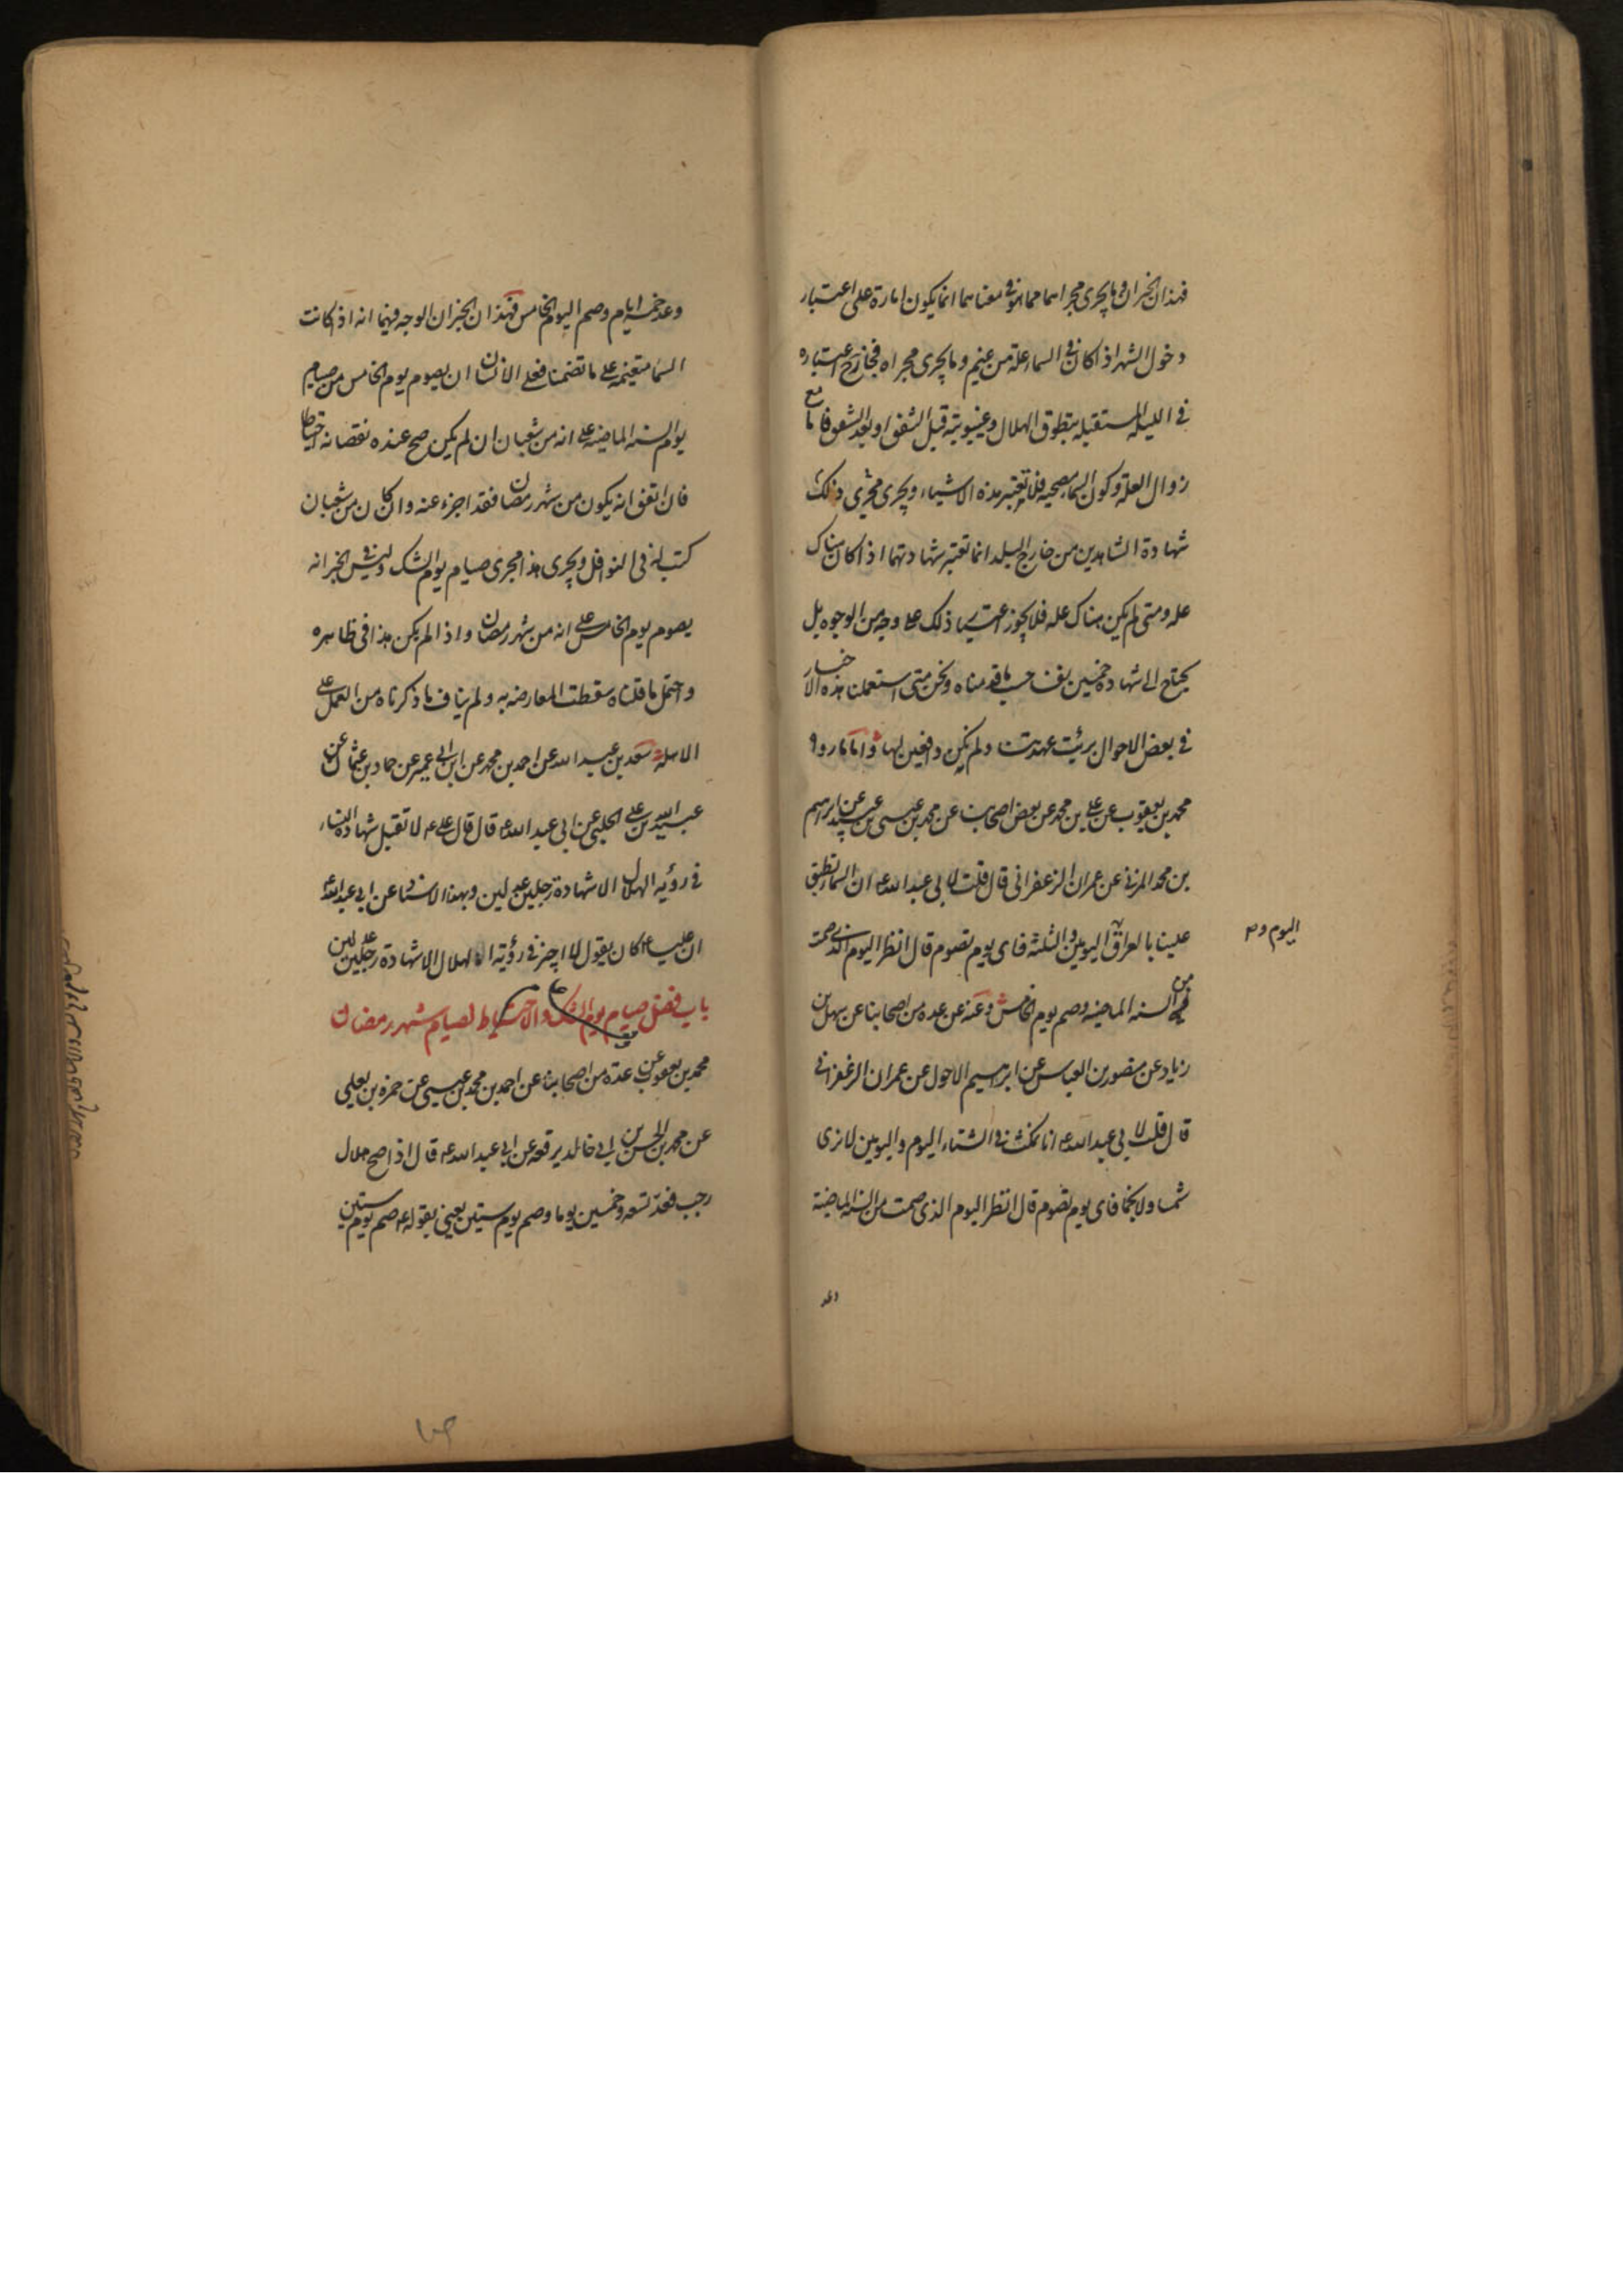 فهذان الخبران وما يجرى مجراهما مما هو فى معناهما انما يكون امارة على اعتبار
دخول الشهر اذا كان فى السماء علة من غيم وما يجرى مجراه فجاز ح اعتباره
فى الليله المستقبله بتطوق الهلال وغيبوبته قبل الشفق او بعد الشفق فاما مع
زوال العلة وكون السما مصحيه فلا تعتبر هذه الاشياء ويجرى مجرى ذلك
شهادة الشاهدين من خارج البلد انما تعتبر شهادتهما اذا كان هناك
عله ومتى لم يكن هناك عله فلا يجوز اعتبار ذلك على وجه من الوجوه بل
يحتاج الى شهادة خمسين نفسا حسب ما قدمناه ونحن متى استعملنا هذه الاخبار
فى بعض الاحوال برئت عهدتنا ولم نكن دافعين لها واما ما رواه
محمد بن يعقوب عن على بن محمد عن بعض اصحابنا عن محمد بن عيسى بن عبيد عن ابرهيم
بن محمد المزنى عن عمران الزعفرانى قال قلت لابى عبد الله ع ان السما تطبق
علينا بالعراق اليومين والثلثة فاى يوم نصوم قال انظر اليوم الذى صمت
اليوم و م
من السنه الماضيه وصم يوم الخامس وعنه عن عده من اصحابنا عن سهل بن
زياد عن منصور بن العباس عن ابرهيم الاحول عن عمران الزعفرانى
قال قلت لابى عبد الله ع انا نمكث فى الشتاء اليوم واليومين لا نرى
شمسا ولا نجما فاى يوم نصوم قال انظر اليوم الذى صمت من السنه الماضية
وعد
وعد خمسة ايام وصم اليوم الخامس فهذان الخبران الوجه فيهما انه اذا كانت
السما متغيمه على ما تضمنا فعلى الانسان ان يصوم يوم الخامس من صيام
يوم السنه الماضيه على انه من شعبان ان لم يكن صح عنده نقصانه احتياطا
فان اتفق انه يكون من شهر رمضان فقد اجزء عنه وان كان من شعبان
كتب له فى النوافل ويجرى هذا مجرى صيام يوم الشك وليس فى الخبر انه
يصوم يوم الخامس على انه من شهر رمضان واذا لم يكن هذا فى ظاهره
واحتمل ما قلناه سقطت المعارضه به ولم يناف ما ذكرناه من العمل على
الاهلة سعد بن عبد الله عن احمد بن محمد عن ابن ابى عمير عن حماد بن عثمان عن
عبيد الله بن على الحلبى عن ابى عبد الله ع قال قال على ع لا تقبل شهادة النساء
فى رؤيه الهلال الا شهادة رجلين عدلين وبهذا الاسناد عن ابى عبد الله ع
ان عليا ع كان يقول لا اجيز فى رؤية الهلال الا شهادة رجلين عدلين
باب فضل صيام يوم الشك والاحتياط لصيام شهر رمضان
محمد بن يعقوب عن عدة من اصحابنا عن احمد بن محمد بن عيسى عن حمزه بن يعلى
عن محمد بن الحسن بن ابى خالد يرفعه عن ابى عبد الله ع قال اذا صح هلال
رجب فعد تسعه وخمسين يوما وصم يوم ستين يعنى بقوله ع صم يوم ستين